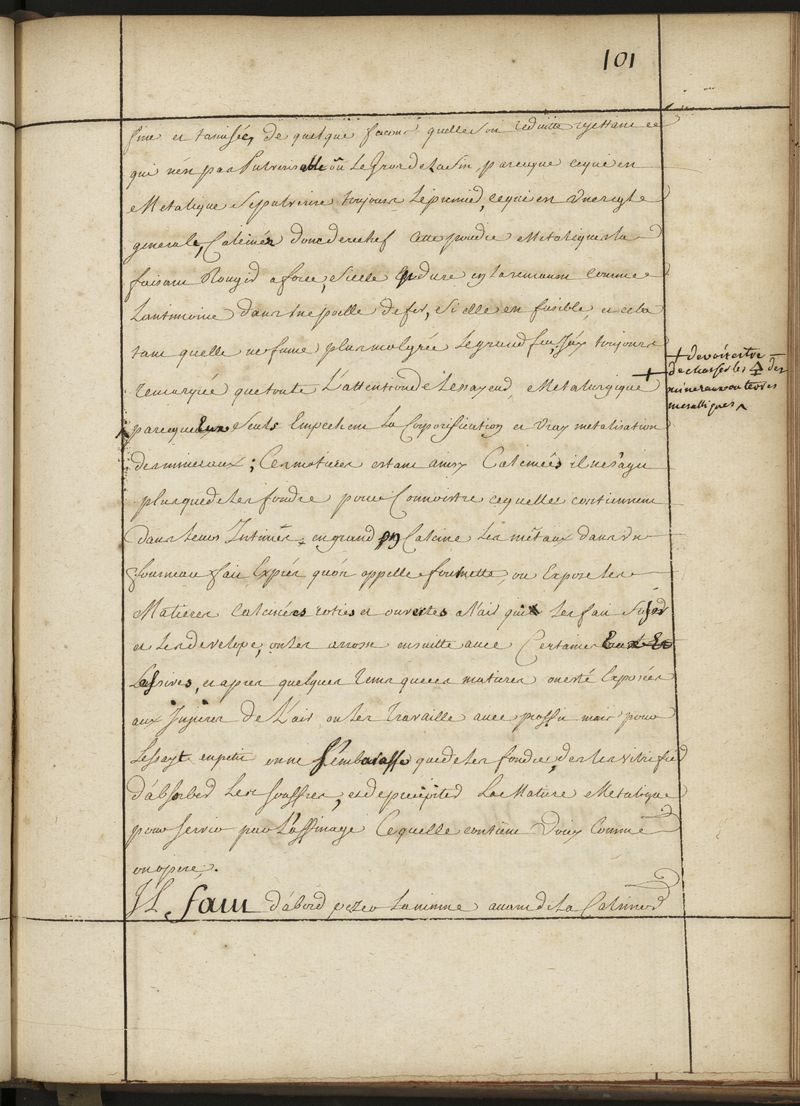 101
fine et tamisée, de quelque facons quelle soit reduitte rejettant ce
qui n'est pas Pulverisable ou Le Gros de la fin, parceque ce qui est
Metalique Se pulverise toujours Le premied, ce qui est Une regle
generale, Calcinés donc derechef Cette poudre Metalique la
faisant Rougir a force, Si elle dure en la remuant comme
L'antimoine dans Une poelle de fer, Si elle est fusible et
tant quelle ne fume plus malgrée Le grand feu, J'ay toujours
remarquée que toute L'attention de Lessayeur Metalurgique +
+ devoit estre
de chasser les 🜍 des
mineraux ou terres
metalliques
parceque Eux Seuls Empechent La Corporification et Vray metalisation
des mineaux; Ces matieres estant ainsy Calcinées il ne s'agit
plus que de les fondre pour Connoistre ce quelles contiennent
dans Leurs Intimes, en grand on Calcine Les métaux dans Un
fourneau fait Exprés qu'on appelle fournette, on Expose les
Matieres Calcinées roties et ouvertes a l'air qui Les fait
et Les develope, on Les arrose ensuitte avec Certaines
Lessives, et apres quelques Tems que ces matieres ont eté Exposées
aux Injures de L'air on Les Travaille avec proffit mais pour
Lessayt en petit on ne S'embarasse que de les fondre, de les vitrified
d'absorbed Les souffres, et de precipited La Matiere Metalique
pour servir par L'affinage Ce quelle contient Voicy Comme
on opere.
JL faut d'abord pezer La mine avant de La Calciner